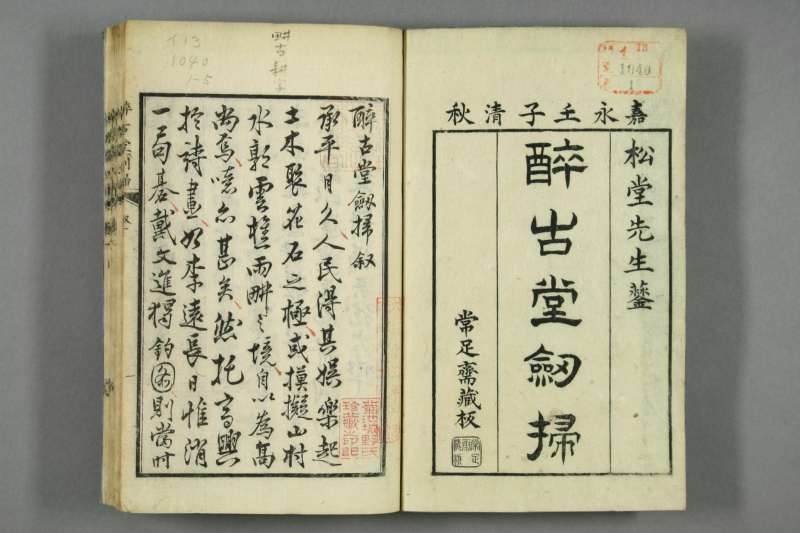 嘉永壬子清秋
松堂先生鑒
醉古堂劔掃
常足齋藏板
醉古堂劔掃叙
承平日久人民得其娯樂起
土木聚花石之極或摸擬山村
水郭雲樵雨畊之境自以為高
尚焉噫亦甚矣然托高興
於詩畫如李遠長日惟消
一局碁戴文進獨釣則當時
畊古耕字
イ13
1040
1-5